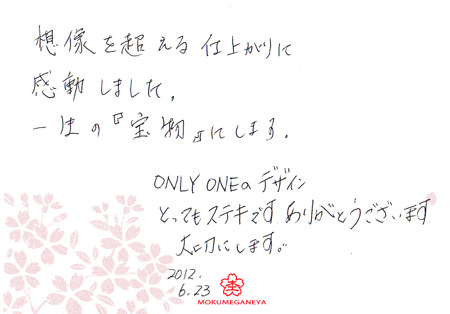 想像を超える仕上がりに
感動しました。
一生の『宝物』にします。
ONLY ONEの デザイン
とってもステキです ありがとうございます
大切にします。
2012.
6.23
MOKUMEGANEYA